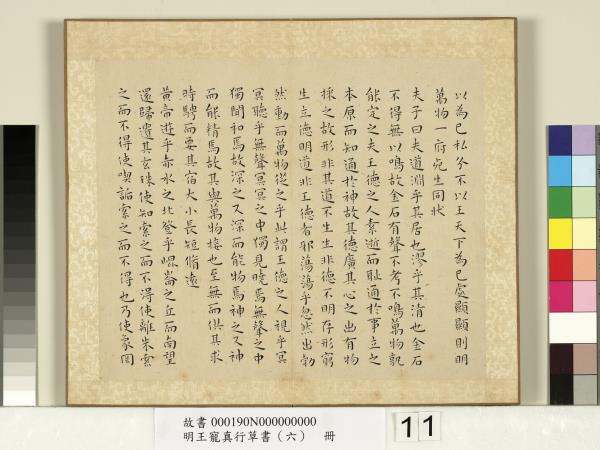 以為己私分不以王天下為己處顯顯則明
萬物一府死生同狀
夫子曰夫道淵乎其居也漻乎其清也金石
不得無以鳴故金石有聲不考不鳴萬物孰
能定之夫王德之人素逝而恥通於事立之
本原而知通於神故其德廣其心之出有物
採之故形非其道不生生非德不明存形窮
生立德明道非王德者邪蕩蕩乎忽然出勃
然動而萬物從之乎此謂王德之人視乎冥
冥聽乎無聲冥冥之中獨見曉焉無聲之中
獨聞和焉故深之又深而能物焉神之又神
而能精焉故其與萬物接也至無而供其求
時騁而要其宿大小長短脩遠
黃帝遊乎赤水之北登乎崐崙之丘而南望
還歸遺其玄珠使知索之而不得使離朱索
之而不得使喫詬索之而不得也乃使象罔
故書 000190N000000000
明王寵真行草書（六） 冊
11